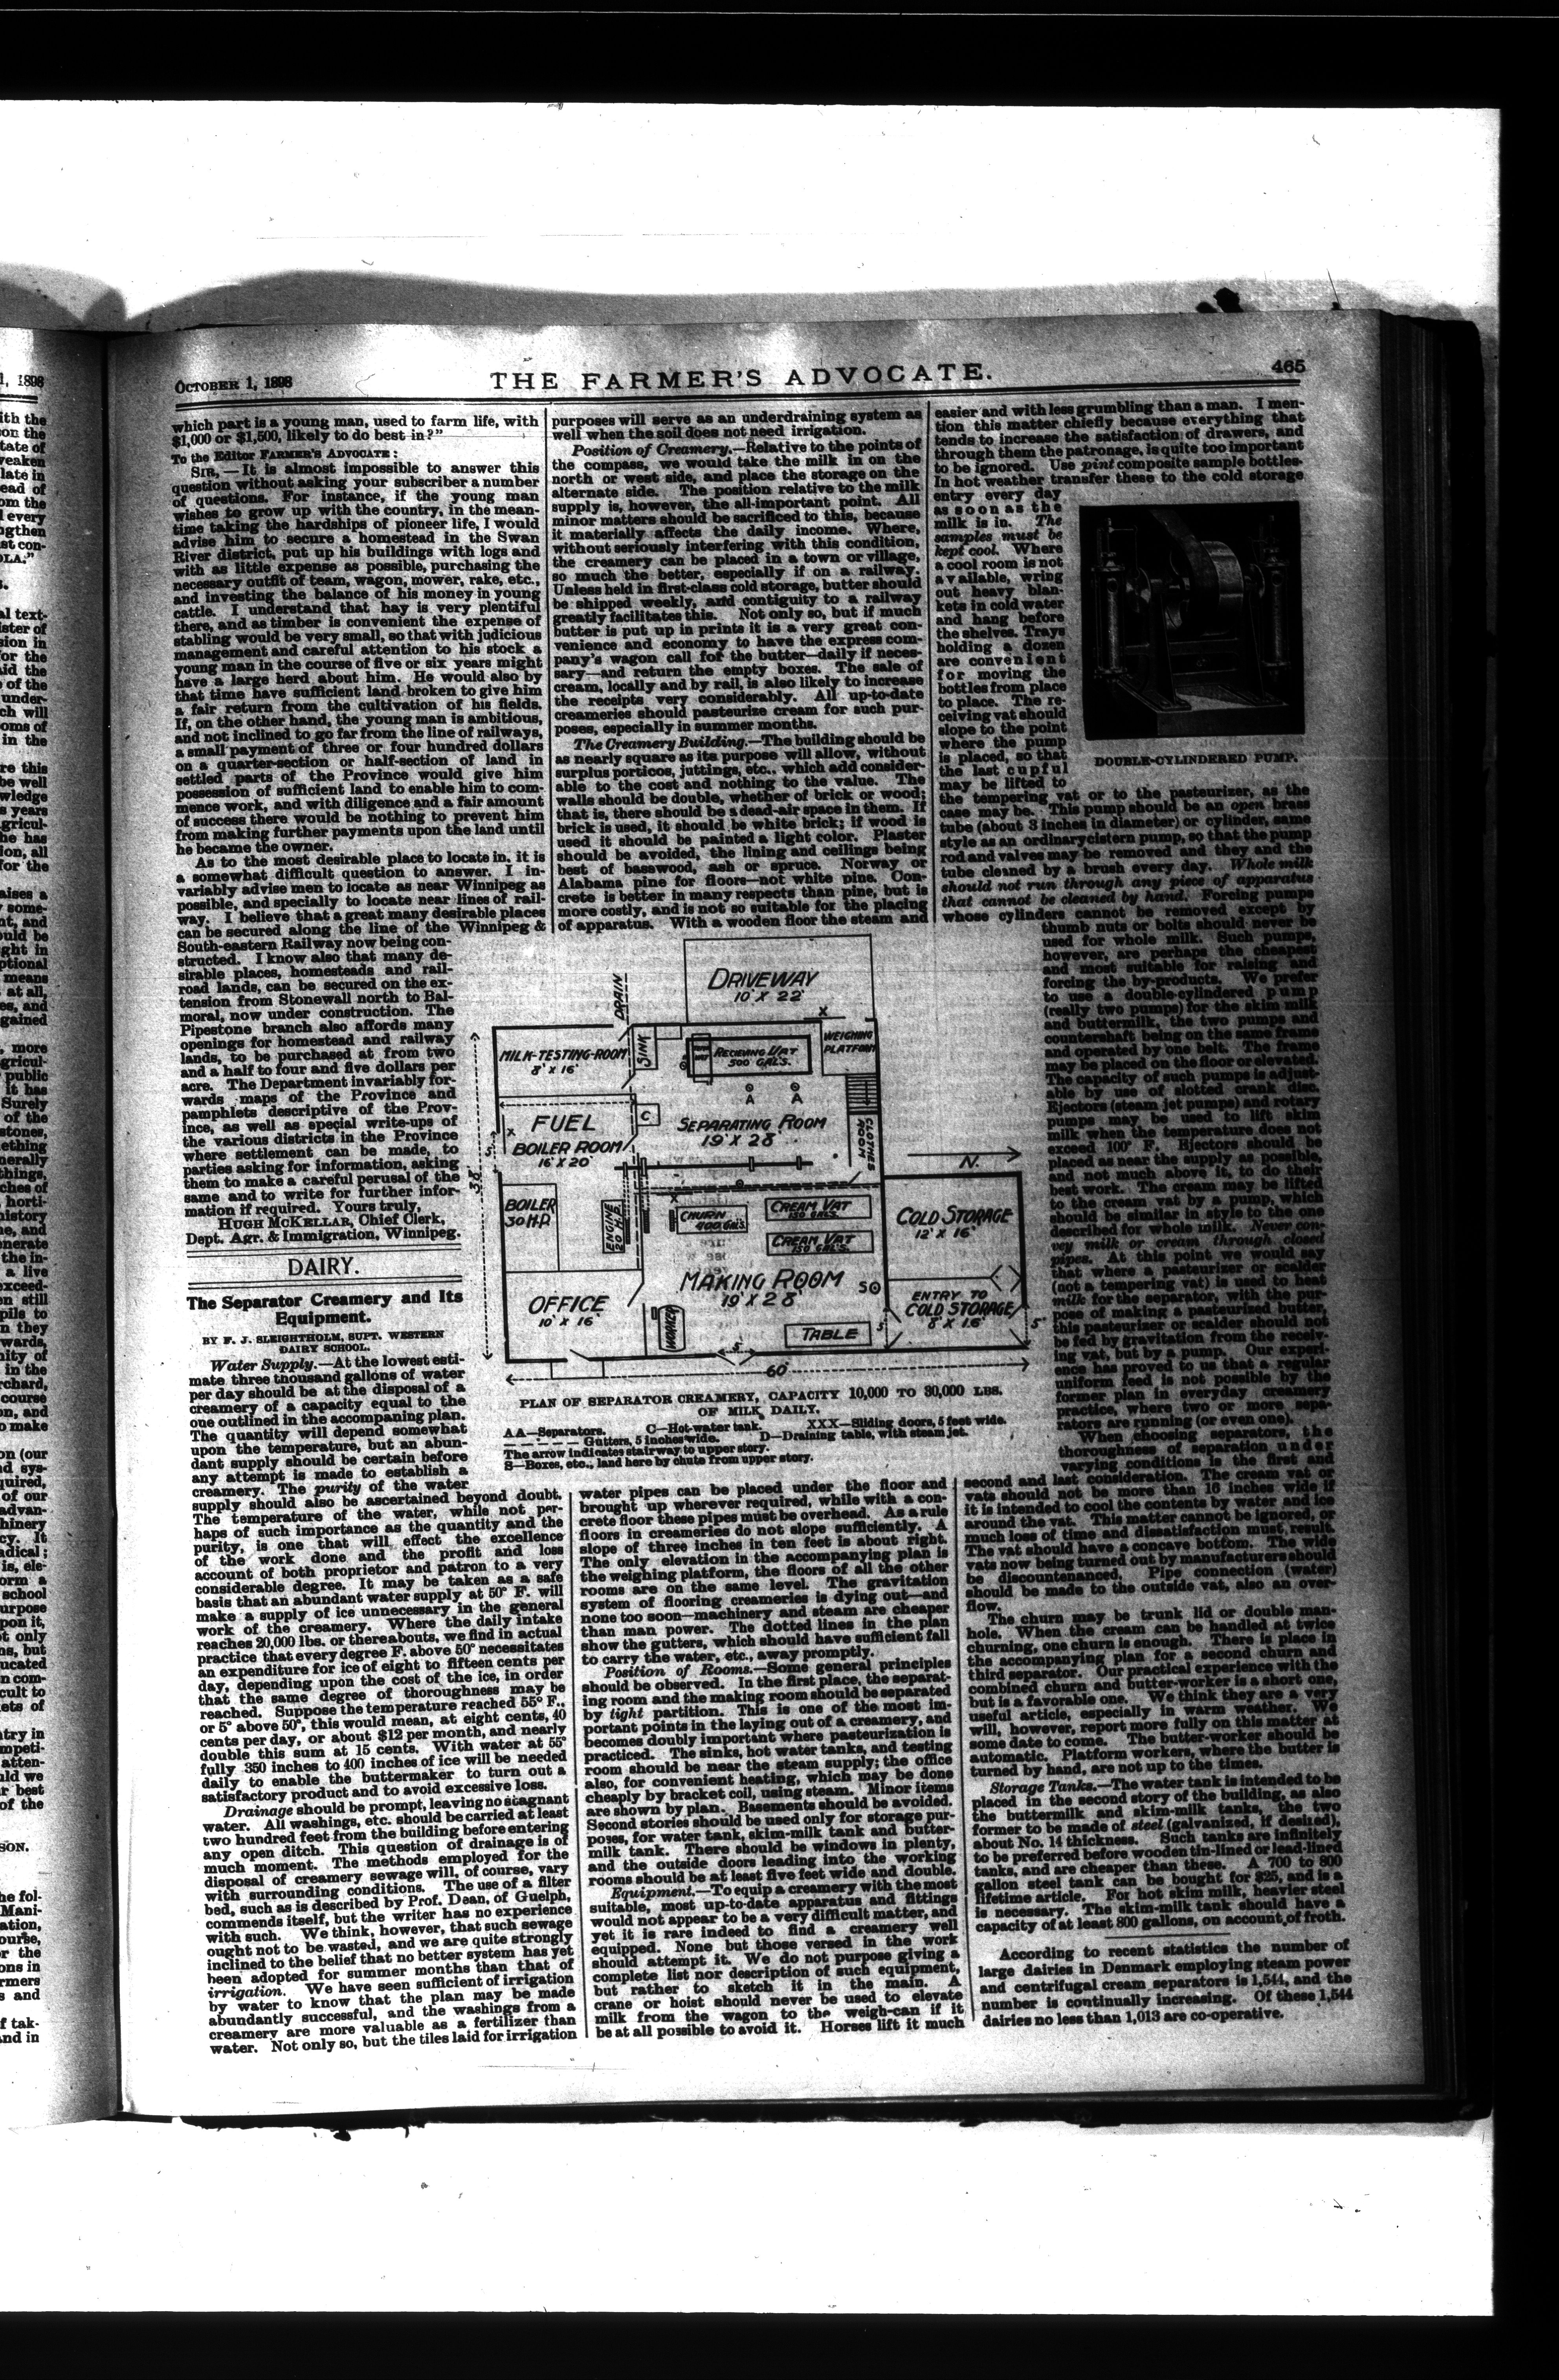 OCTOBER 1, 1898
THE FARMER'S ADVOCATE.
465
which part is a young man, used to farm life, with
$1,000 or $1,500, likely to do best in?"
To the Editor FARMER'S ADVOCATE:
SIR,—It is almost impossible to answer this
question without asking your subscriber a number
of questions. For instance, if the young man
wishes to grow up with the country, in the mean-
time taking the hardships of pioneer life, I would
advise him to secure a homestead in the Swan
River district, put up his buildings with logs and
with as little expense as possible, purchasing the
necessary outfit of team, wagon, mower, rake, etc.,
and investing the balance of his money in young
cattle. I understand that hay is very plentiful
there, and as timber is convenient the expense of
stabling would be very small, so that with judicious
management and careful attention to his stock a
young man in the course of five or six years might
have a large herd about him. He would also by
that time have sufficient land broken to give him
a fair return from the cultivation of his fields.
If, on the other hand, the young man is ambitious,
and not inclined to go far from the line of railways,
a small payment of three or four hundred dollars
on a quarter-section or half-section of land in
settled parts of the Province would give him
possession of sufficient land to enable him to com-
mence work, and with diligence and a fair amount
of success there would be nothing to prevent him
from making further payments upon the land until
he became the owner.
As to the most desirable place to locate in, it is
a somewhat difficult question to answer. I in-
variably advise men to locate as near Winnipeg as
possible, and specially to locate near lines of rail-
way. I believe that a great many desirable places
can be secured along the line of the Winnipeg &
South-eastern Railway now being con-
structed. I know also that many de-
sirable places, homesteads and rail-
road lands, can be secured on the ex-
tension from Stonewall north to Bal-
moral, now under construction. The
Pipestone branch also affords many
openings for homestead and railway
lands, to be purchased at from two
and a half to four and five dollars per
acre. The Department invariably for-
wards maps of the Province and
pamphlets descriptive of the Prov-
ince, as well as special write-ups of
the various districts in the Province
where settlement can be made, to
parties asking for information, asking
them to make a careful perusal of the
same and to write for further infor-
mation if required. Yours truly,
HUGH MCKELLAR, Chief Clerk,
Dept. Agr. & Immigration, Winnipeg.
DAIRY.
The Separator Creamery and Its
Equipment.
BY F. J. SLEIGHTHOLM, SUPT. WESTERN
DAIRY SCHOOL.
Water Supply.—At the lowest esti-
mate three thousand gallons of water
per day should be at the disposal of a
creamery of a capacity equal to the
one outlined in the accompaning plan.
The quantity will depend somewhat
upon the temperature, but an abun-
dant supply should be certain before
any attempt is made to establish a
creamery. The purity of the water
supply should also be ascertained beyond doubt.
The temperature of the water, while not per-
haps of such importance as the quantity and the
purity, is one that will effect the excellence
of the work done and the profit and loss
account of both proprietor and patron to a very
considerable degree. It may be taken as a safe
basis that an abundant water supply at 50° F. will
make a supply of ice unnecessary in the general
work of the creamery. Where the daily intake
reaches 20,000 lbs. or thereabouts, we find in actual
practice that every degree F. above 50° necessitates
an expenditure for ice of eight to fifteen cents per
day, depending upon the cost of the ice, in order
that the same degree of thoroughness may be
reached. Suppose the temperature reached 55° F.,
or 5° above 50°, this would mean, at eight cents, 40
cents per day, or about $12 per month, and nearly
double this sum at 15 cents. With water at 55°
fully 350 inches to 400 inches of ice will be needed
daily to enable the buttermaker to turn out a
satisfactory product and to avoid excessive loss.
Drainage should be prompt, leaving no stagnant
water. All washings, etc. should be carried at least
two hundred feet from the building before entering
any open ditch. This question of drainage is of
much moment. The methods employed for the
disposal of creamery sewage will, of course, vary
with surrounding conditions. The use of a filter
bed, such as is described by Prof. Dean, of Guelph,
commends itself, but the writer has no experience
with such. We think, however, that such sewage
ought not to be wasted, and we are quite strongly
inclined to the belief that no better system has yet
been adopted for summer months than that of
irrigation. We have seen sufficient of irrigation
by water to know that the plan may be made
abundantly successful, and the washings from a
creamery are more valuable as a fertilizer than
water. Not only so, but the tiles laid for irrigation
purposes will serve as an underdraining system as
well when the soil does not need irrigation.
Position of Creamery.—Relative to the points of
the compass, we would take the milk in on the
north or west side, and place the storage on the
alternate side. The position relative to the milk
supply is, however, the all-important point. All
minor matters should be sacrificed to this, because
it materially affects the daily income. Where,
without seriously interfering with this condition,
the creamery can be placed in a town or village,
so much the better, especially if on a railway.
Unless held in first-class cold storage, butter should
be shipped weekly, and contiguity to a railway
greatly facilitates this. Not only so, but if much
butter is put up in prints it is a very great con-
venience and economy to have the express com-
pany's wagon call for the butter—daily if neces-
sary—and return the empty boxes. The sale of
cream, locally and by rail, is also likely to increase
the receipts very considerably. All up-to-date
creameries should pasteurize cream for such pur-
poses, especially in summer months.
The Creamery Building.—The building should be
as nearly square as its purpose will allow, without
surplus porticos, juttings, etc., which add consider-
able to the cost and nothing to the value. The
walls should be double, whether of brick or wood;
that is, there should be a dead-air space in them. If
brick is used, it should be white brick; if wood is
used it should be painted a light color. Plaster
should be avoided, the lining and ceilings being
best of basswood, ash or spruce. Norway or
Alabama pine for floors—not white pine. Con-
crete is better in many respects than pine, but is
more costly, and is not so suitable for the placing
of apparatus. With a wooden floor the steam and
DRIVEWAY
10' X 22'
DRAIN
X
MILK-TESTING-ROOM
8' X 16'
SINK
RECIEVING VAT
300 GALS.
WEIGHING
PLATFORM
A A
C
FUEL
X
BOILER ROOM
16' X 20'
SEPARATING ROOM
19' X 28'
CLOTHES
ROOM
N.
BOILER
30 H.P.
ENGINE
20 H.P.
X
CHURN
400 GALS.
CREAM VAT
150 GALS.
CREAM VAT
150 GALS.
COLD STORAGE
12' X 16'
MAKING ROOM
19' X 28'
S
OFFICE
10' X 16'
WORKER
TABLE
ENTRY TO
COLD STORAGE
8' X 16'
5'
5'
5'
60'
PLAN OF SEPARATOR CREAMERY, CAPACITY 10,000 TO 30,000 LBS.
OF MILK DAILY.
AA—Separators. C—Hot-water tank. XXX—Sliding doors, 5 feet wide.
— — — — — Gutters, 5 inches wide. D—Draining table, with steam jet.
The arrow indicates stairway to upper story.
S—Boxes, etc., land here by chute from upper story.
water pipes can be placed under the floor and
brought up wherever required, while with a con-
crete floor these pipes must be overhead. As a rule
floors in creameries do not slope sufficiently. A
slope of three inches in ten feet is about right.
The only elevation in the accompanying plan is
the weighing platform, the floors of all the other
rooms are on the same level. The gravitation
system of flooring creameries is dying out—and
none too soon—machinery and steam are cheaper
than man power. The dotted lines in the plan
show the gutters, which should have sufficient fall
to carry the water, etc., away promptly.
Position of Rooms.—Some general principles
should be observed. In the first place, the separat-
ing room and the making room should be separated
by tight partition. This is one of the most im-
portant points in the laying out of a creamery, and
becomes doubly important where pasteurization is
practiced. The sinks, hot water tanks, and testing
room should be near the steam supply; the office
also, for convenient heating, which may be done
cheaply by bracket coil, using steam. Minor items
are shown by plan. Basements should be avoided.
Second stories should be used only for storage pur-
poses, for water tank, skim-milk tank and butter-
milk tank. There should be windows in plenty,
and the outside doors leading into the working
rooms should be at least five feet wide and double.
Equipment.—To equip a creamery with the most
suitable, most up-to-date apparatus and fittings
would not appear to be a very difficult matter, and
yet it is rare indeed to find a creamery well
equipped. None but those versed in the work
should attempt it. We do not purpose giving a
complete list nor description of such equipment,
but rather to sketch it in the main. A
crane or hoist should never be used to elevate
milk from the wagon to the weigh-can if it
be at all possible to avoid it. Horses lift it much
easier and with less grumbling than a man. I men-
tion this matter chiefly because everything that
tends to increase the satisfaction of drawers, and
through them the patronage, is quite too important
to be ignored. Use pint composite sample bottles.
In hot weather transfer these to the cold storage
entry every day
as soon as the
milk is in. The
samples must be
kept cool. Where
a cool room is not
available, wring
out heavy blan-
kets in cold water
and hang before
the shelves. Trays
holding a dozen
are convenient
for moving the
bottles from place
to place. The re-
ceiving vat should
slope to the point
where the pump
is placed, so that
the last cupful
may be lifted to
DOUBLE-CYLINDERED PUMP.
the tempering vat or to the pasteurizer, as the
case may be. This pump should be an open brass
tube (about 3 inches in diameter) or cylinder, same
style as an ordinary cistern pump, so that the pump
rod and valves may be removed and they and the
tube cleaned by a brush every day. Whole milk
should not run through any piece of apparatus
that cannot be cleaned by hand. Forcing pumps
whose cylinders cannot be removed except by
thumb nuts or bolts should never be
used for whole milk. Such pumps,
however, are perhaps the cheapest
and most suitable for raising and
forcing the by-products. We prefer
to use a double-cylindered pump
(really two pumps) for the skim milk
and buttermilk, the two pumps and
countershaft being on the same frame
and operated by one belt. The frame
may be placed on the floor or elevated.
The capacity of such pumps is adjust-
able by use of slotted crank disc.
Ejectors (steam jet pumps) and rotary
pumps may be used to lift skim
milk when the temperature does not
exceed 100° F. Ejectors should be
placed as near the supply as possible,
and not much above it, to do their
best work. The cream may be lifted
to the cream vat by a pump, which
should be similar in style to the one
described for whole milk. Never con-
vey milk or cream through closed
pipes. At this point we would say
that where a pasteurizer or scalder
(not a tempering vat) is used to heat
milk for the separator, with the pur-
pose of making a pasteurized butter,
this pasteurizer or scalder should not
be fed by gravitation from the receiv-
ing vat, but by a pump. Our experi-
ence has proved to us that a regular
uniform feed is not possible by the
former plan in everyday creamery
practice, where two or more sepa-
rators are running (or even one).
When choosing separators, the
thoroughness of separation under
varying conditions is the first and
second and last consideration. The cream vat or
vats should not be more than 16 inches wide if
it is intended to cool the contents by water and ice
around the vat. This matter cannot be ignored, or
much loss of time and dissatisfaction must result.
The vat should have a concave bottom. The wide
vats now being turned out by manufacturers should
be discountenanced. Pipe connection (water)
should be made to the outside vat, also an over-
flow.
The churn may be trunk lid or double man-
hole. When the cream can be handled at twice
churning, one churn is enough. There is place in
the accompanying plan for a second churn and
third separator. Our practical experience with the
combined churn and butter-worker is a short one,
but is a favorable one. We think they are a very
useful article, especially in warm weather. We
will, however, report more fully on this matter at
some date to come. The butter-worker should be
automatic. Platform workers, where the butter is
turned by hand, are not up to the times.
Storage Tanks.—The water tank is intended to be
placed in the second story of the building, as also
the buttermilk and skim-milk tanks, the two
former to be made of steel (galvanized, if desired),
about No. 14 thickness. Such tanks are infinitely
to be preferred before wooden tin-lined or lead-lined
tanks, and are cheaper than these. A 700 to 800
gallon steel tank can be bought for $25, and is a
lifetime article. For hot skim milk, heavier steel
is necessary. The skim-milk tank should have a
capacity of at least 800 gallons, on account of froth.
According to recent statistics the number of
large dairies in Denmark employing steam power
and centrifugal cream separators is 1,544, and the
number is continually increasing. Of these 1,544
dairies no less than 1,013 are co-operative.